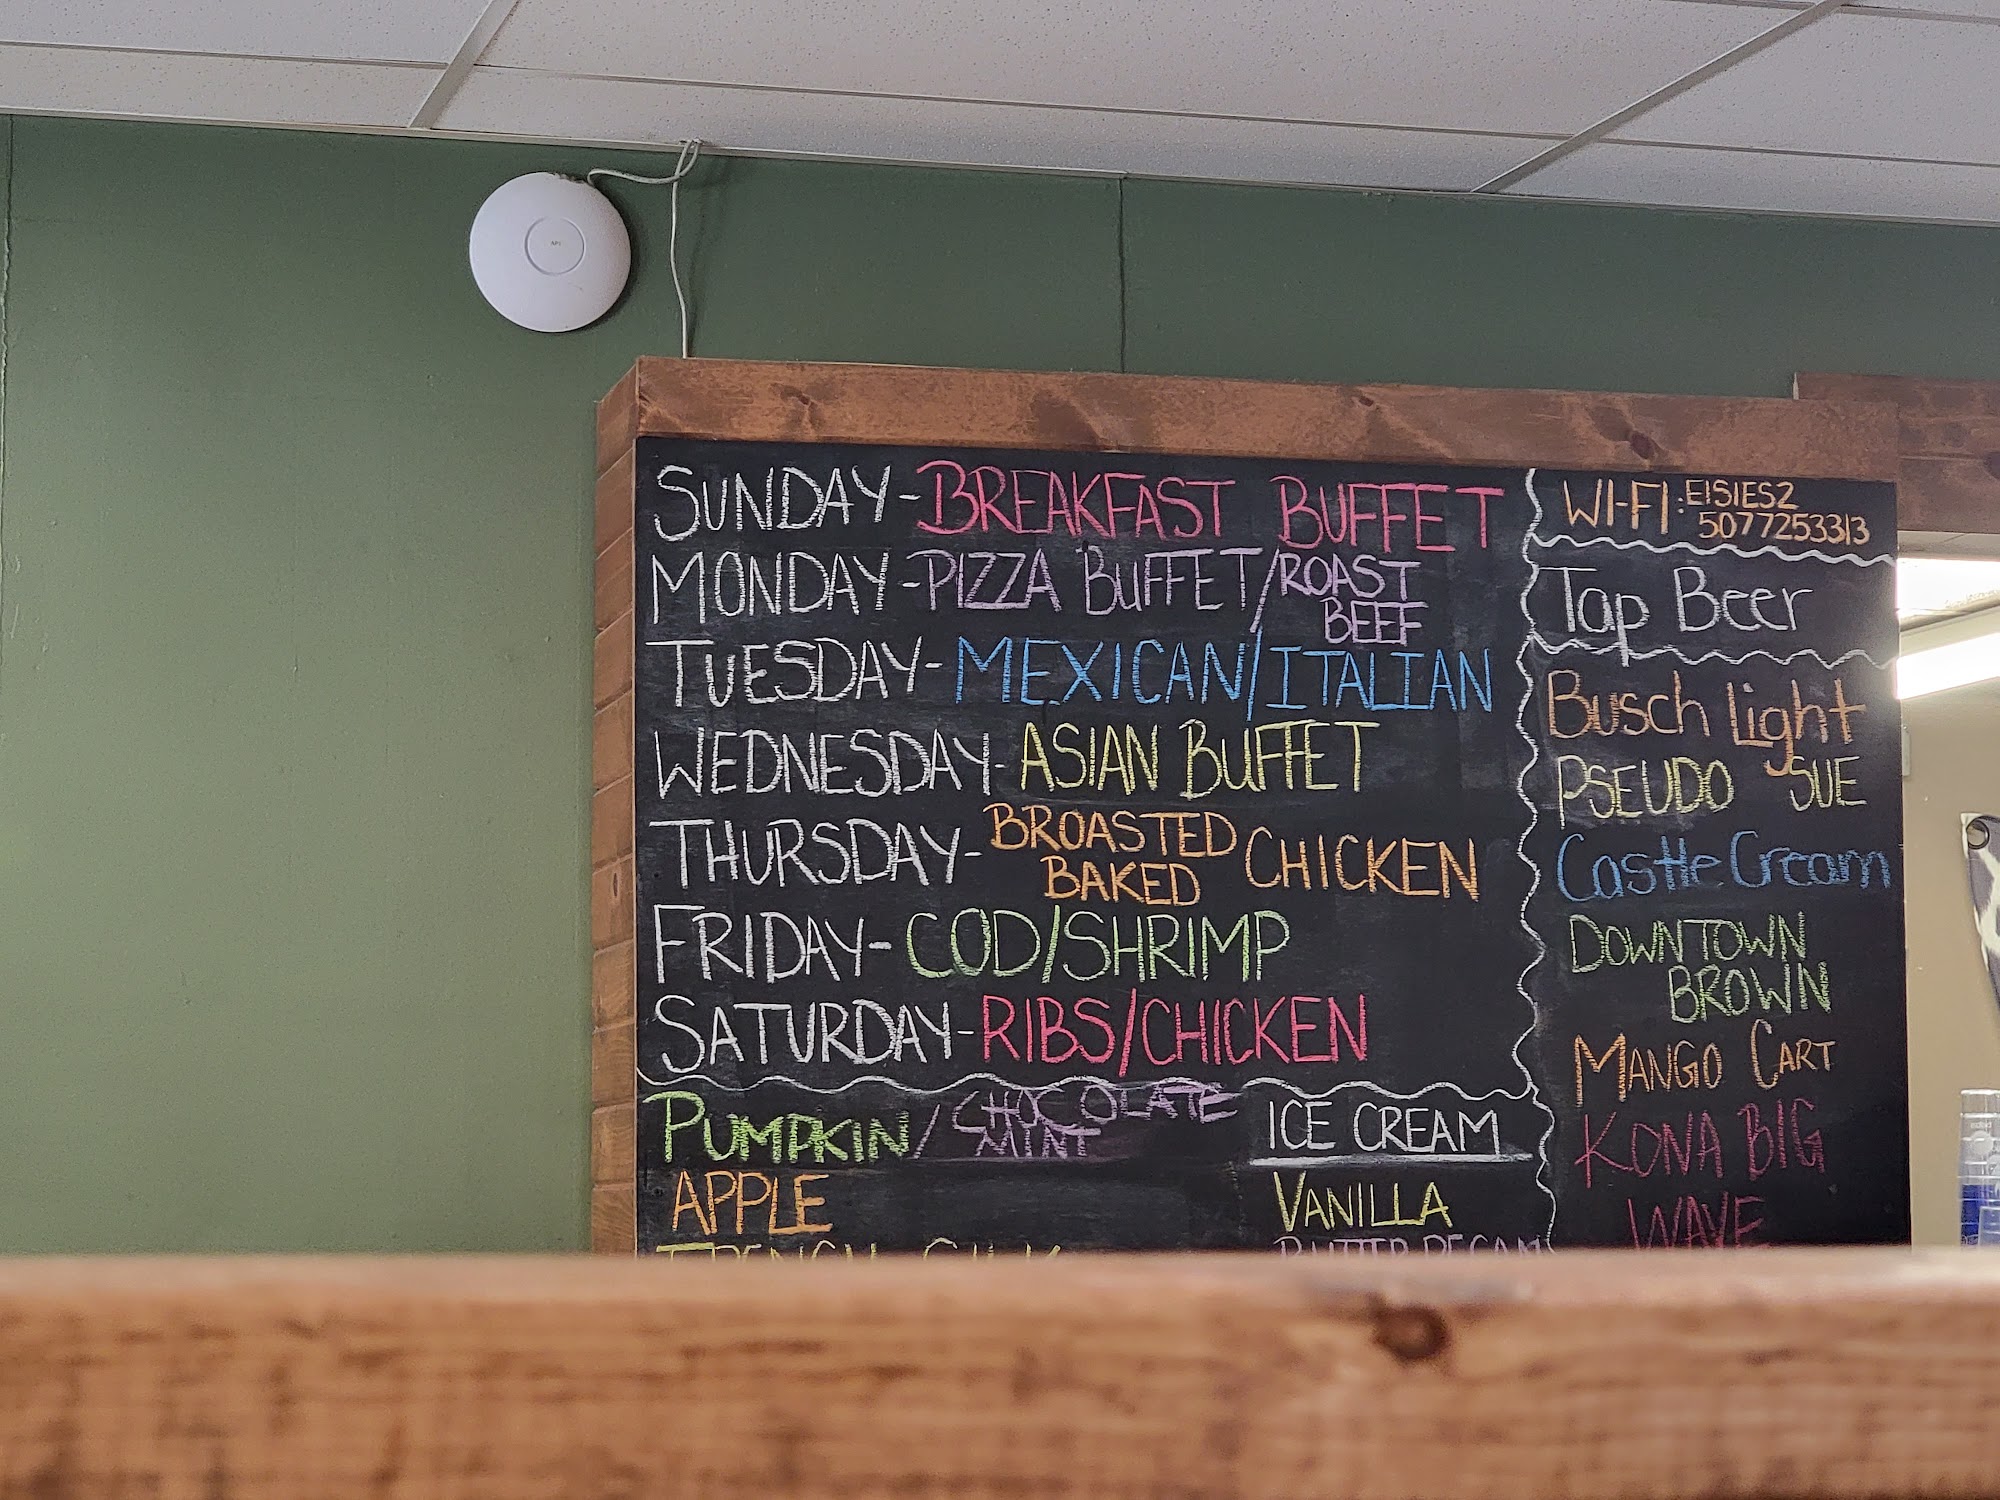 SUNDAY-BREAKFAST BUFFET
MONDAY-PIZZA BUFFET/ROAST BEEF
TUESDAY-MEXICAN/ITALIAN
WEDNESDAY-ASIAN BUFFET
THURSDAY-BROASTED BAKED CHICKEN
FRIDAY-COD/SHRIMP
SATURDAY-RIBS/CHICKEN
PUMPKIN/CHOCOLATE MINT
APPLE
FRENCH SILK
ICE CREAM
VANILLA
BUTTER PECAN
WI-FI: EISIES2
5077253313
Tap Beer
Busch Light
PSEUDO SUE
Castle Cream
DOWNTOWN
BROWN
MANGO CART
KONA BIG
WAVE